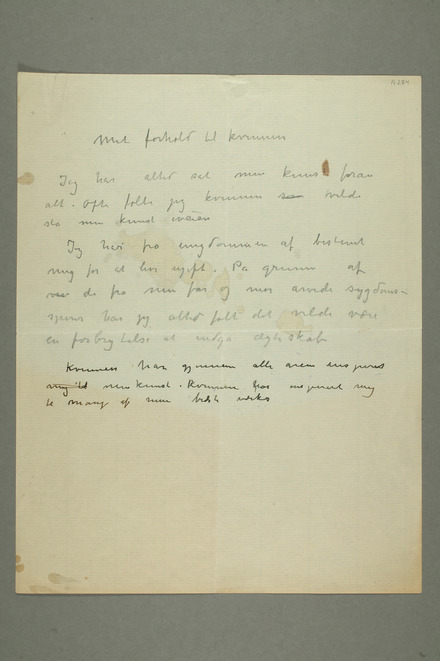 N 284
Mit forhold til kvinnen
Jeg har altid sat min kunst foran
alt. Ofte følte jeg kvinnen vilde
stå min kunst iveien
Jeg har fra ungdommen af bestemt
mig for at leve ugift. På grunn af
de fra min far og mor arvede sygdoms-
spirer har jeg altid følt det vilde være
en forbrytelse at indgå ægteskab
Kvinnen har gjennem alle årene inspireret
mig til min kunst. Kvinnen har inspireret mig
til mange af mine bedste verker